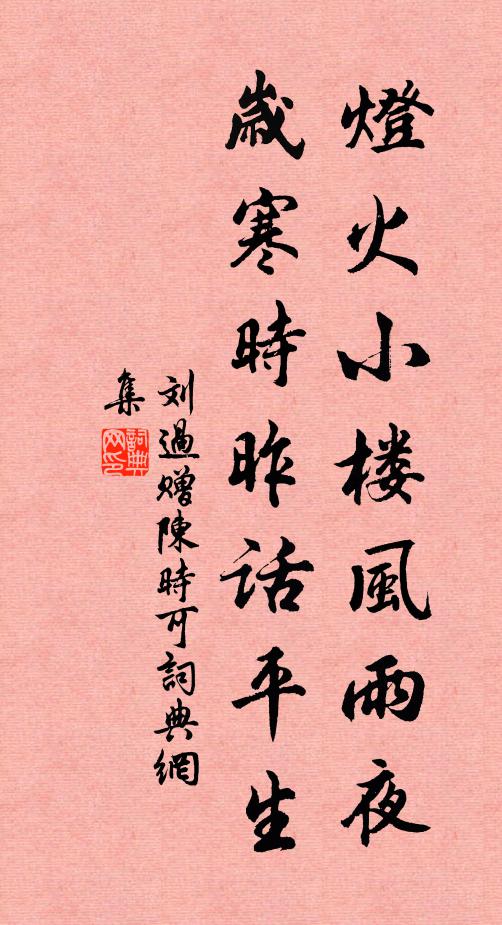 燈火小楼風雨夜
歲寒時昨話平生
刘過贈陳時可詞典網
集
詞典
网印